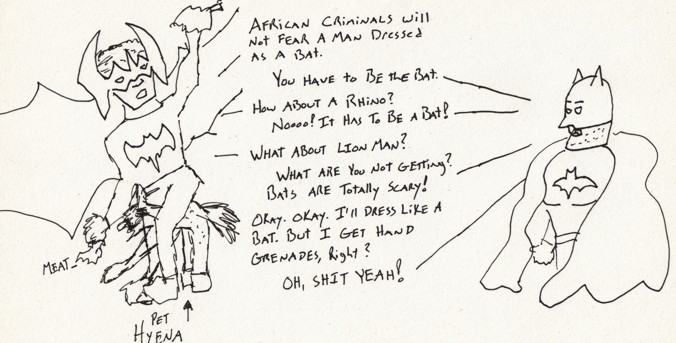 African Criminals will
Not Fear A Man Dressed
As A Bat.
You Have to Be the Bat.
How About A Rhino?
Noooo! It Has To Be A Bat!
What About Lion Man?
What Are You Not Getting?
Bats Are Totally Scary!
Okay. Okay. I'll Dress Like A
Bat. But I Get Hand
Grenades, Right?
Oh, Shit Yeah!
Meat
Pet
Hyena